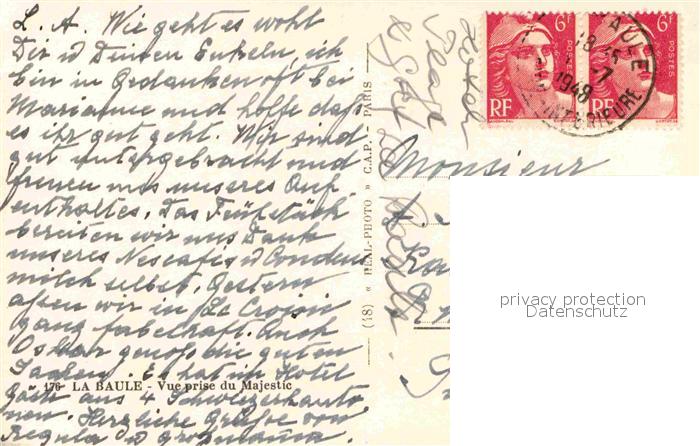 L. A. Wie geht es wohl
Dir u Deinen Enkeln, ich
bin in Gedanken oft bei
Marianne und hoffe dass
es ihr gut geht. Wir sind
gut untergebracht und
freuen uns unseres Auf
enthaltes. Das Frühstück
bereiten wir uns Dank
unseres Nescafés u Condens
milch selbst. Gestern
assen wir in Le Croisic
ganz fabelhaft. Auch
Oskar genoss die guten
Sachen. Es hat im Hotel
Gäste aus 4 Schweizerkanto
nen. Herzliche Grüsse von
Regula u Grossmama.
176 LA BAULE - Vue prise du Majestic
(48) « REAL-PHOTO » C.A.P. - PARIS
Hotel
Plage
La Baule
6F
6F
POSTES
POSTES
RF
RF
BAULE
18
1948
INFERIEURE
Monsieur
privacy protection
Datenschutz